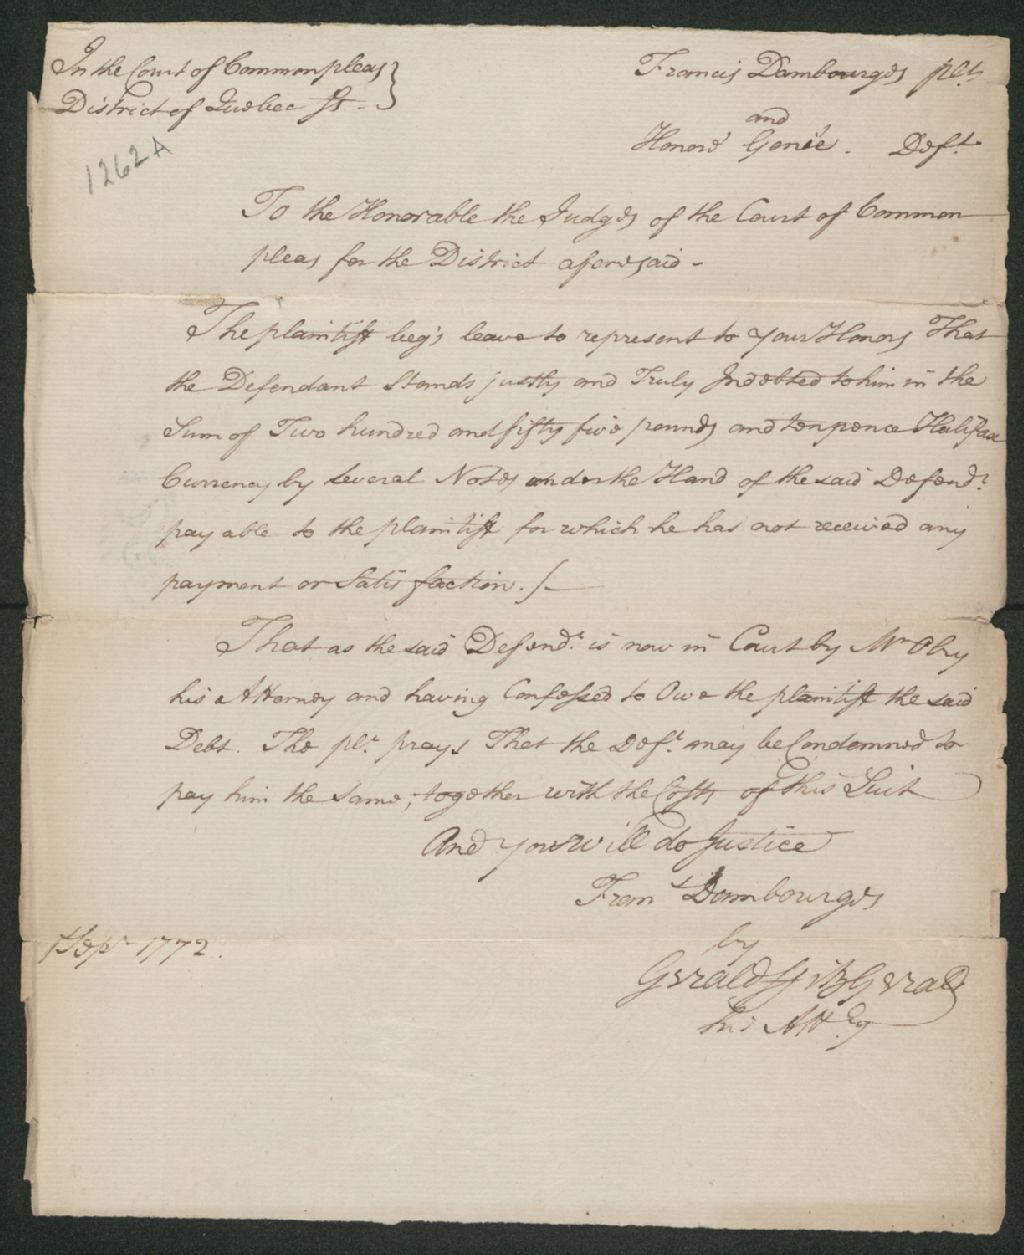 In the Court of Common pleas }
District of Quebec Ss. }
Francis Dambourges plt.
and
Honoré Genié. Deft.
1262 A
To the Honorable the Judges of the Court of Common
pleas for the District aforesaid -
The plaintiff beg's leave to represent to your Honors That
the Defendant Stands justly and Truly Indebted to him in the
Sum of Two hundred and fifty five pounds and ten pence Halifax
Currency by several Notes under the Hand of the said Defend.t
payable to the plaintiff for which he has not received any
payment or Satisfaction. /-
That as the said Defend.t is now in Court by Mr Olry
his Attorney and having Confessed to Owe the plaintiff the said
Debt. The plt. prays That the Deft. may be Condemned to
pay him the same, together with the Costs of this Suit
And you will do Justice
Fran.s Dambourges
by
Gerald FitzGerald
his Att.ey
1 Sepr. 1772.